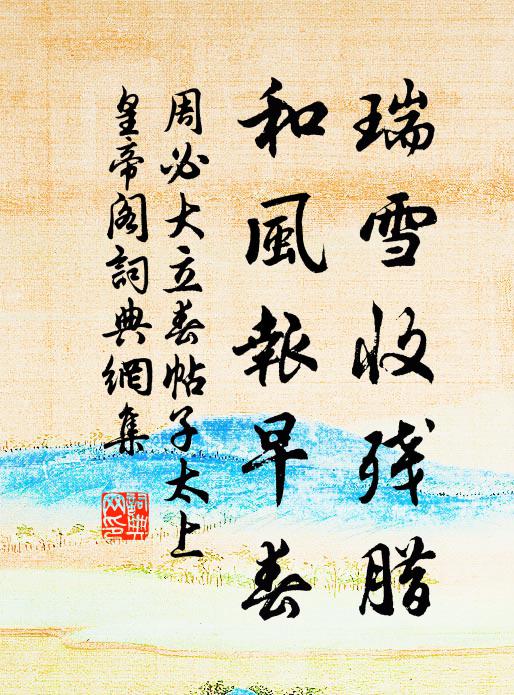 瑞雪收残腊
和風報早春
周必大立春帖子太上
皇帝阁詞典網集
詞典網印